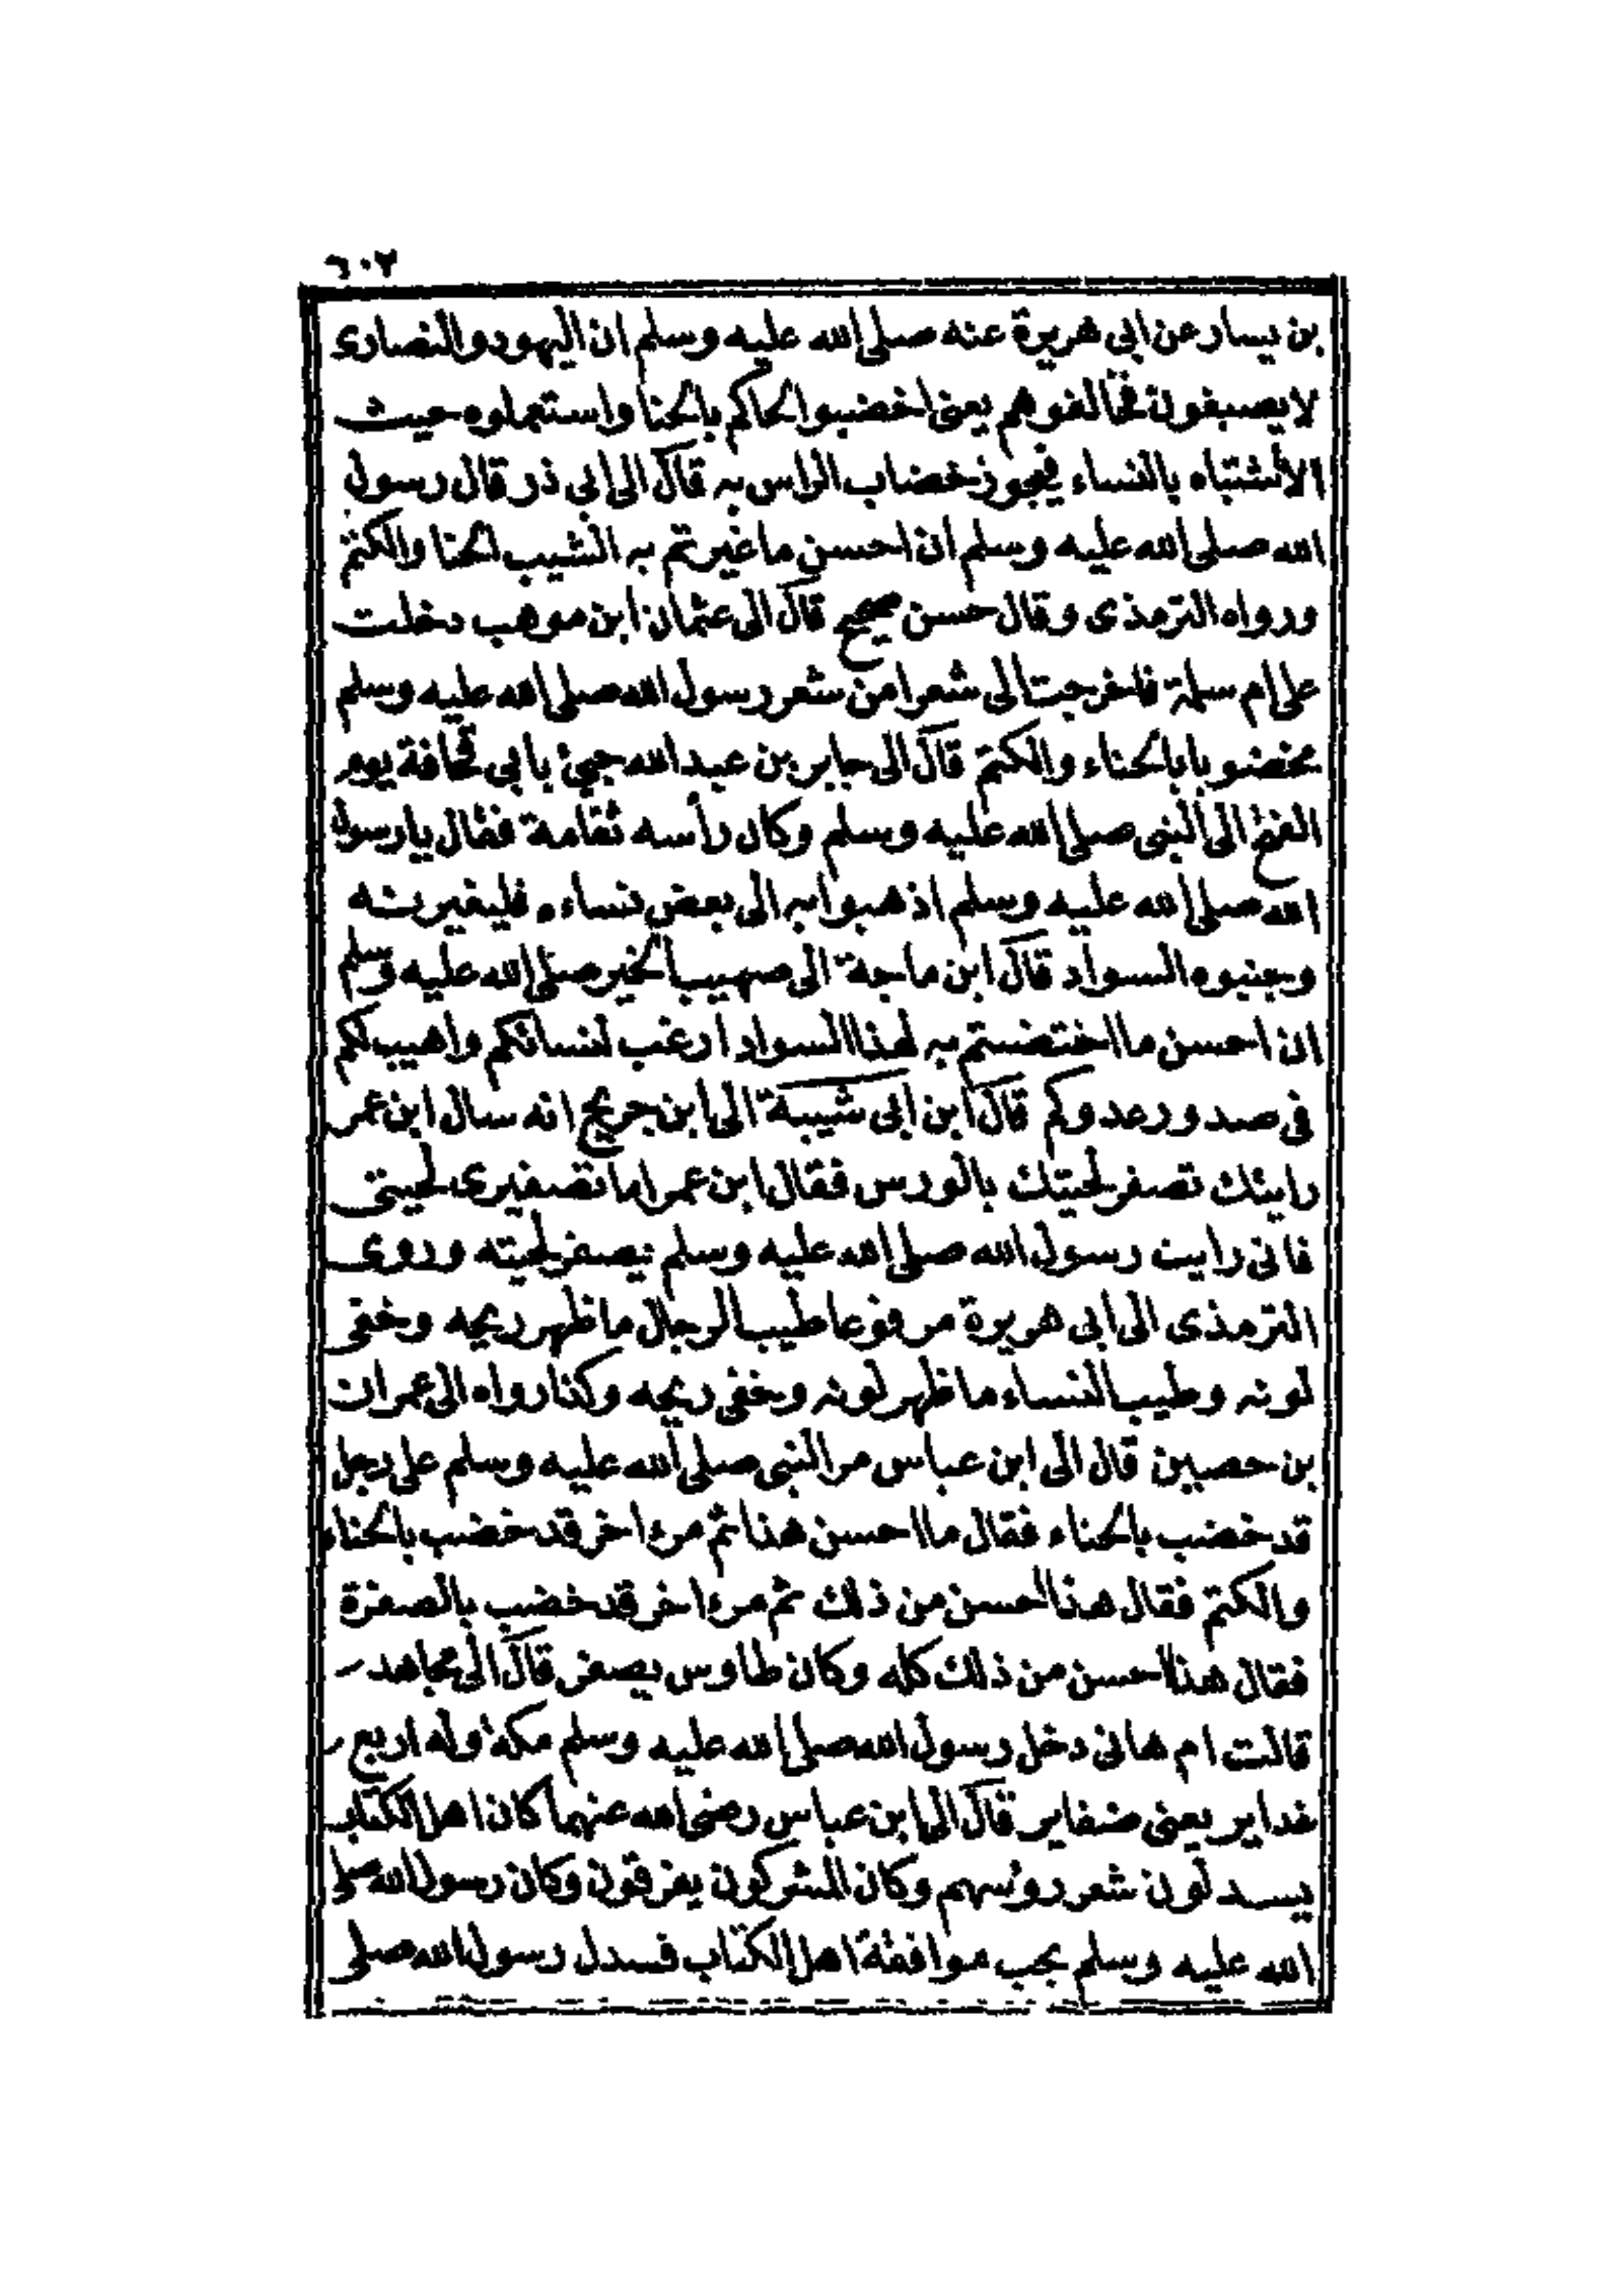 ٦٠٢
بن يسار عن ابى هريرة عنه صلى الله عليه وسلم ان اليهود والنصارى
لا يصبغون فخالفوهم يعنى اخضبوا لحاكم بالحنا واستعملوه حيث
الاشتباه بالنساء فيجوز خضاب الراس به قال الى ابى ذر قال رسول
الله صلى الله عليه وسلم ان احسن ما غيرتم به الشيب الحنا والكتم
ورواه الترمذى وقال حسن صحيح قال الى عثمان ابن موهب دخلت
على ام سلمة فاخرجت الى شعرا من شعر رسول الله صلى الله عليه وسلم
مخضوبا بالحناء والكتم قال الى جابر بن عبد الله جيئ بابي قحافة يوم
الفتح الى النبى صلى الله عليه وسلم وكان رأسه ثغامة فقال يا رسول
الله صلى الله عليه وسلم اذهبوا به الى بعض نساءه فليغيرنه
وجنبوه السواد قال ابن ماجة الى صهيب الخير صلى الله عليه وسلم
ان احسن ما اختضبتم به لهذا السواد ارغب لنسائكم واهيب لكم
فى صدور عدوكم قال ابن ابى شيبة الى ابن جريج انه سال ابن عمر
رايتك تصفر لحيتك بالورس فقال ابن عمر اما تصفيرى لحيتى
فانى رايت رسول الله صلى الله عليه وسلم يصفر لحيته وروى
الترمذى الى ابى هريرة مرفوعا طيب الرجال ما ظهر ريحه وخفى
لونه وطيب النساء ما ظهر لونه وخفى ريحه وكذا رواه الى عمران
بن حصين قال الى ابن عباس مر النبى صلى الله عليه وسلم على رجل
قد خضب بالحناء فقال ما احسن هذا ثم مر اخر قد خضب بالحناء
والكتم فقال هذا احسن من ذلك ثم مر اخر قد خضب بالصفرة
فقال هذا احسن من ذلك كله وكان طاوس يصفر قال الى مجاهد
قالت ام هانى دخل رسول الله صلى الله عليه وسلم مكة وله اربع
غداير يعنى ضفاير قال الى ابن عباس رضى الله عنهما كان اهل الكتاب
يسدلون شعر روئسهم وكان المشركون يفرقون وكان رسول الله صلى
الله عليه وسلم يحب موافقة اهل الكتاب فسدل رسول الله صلى